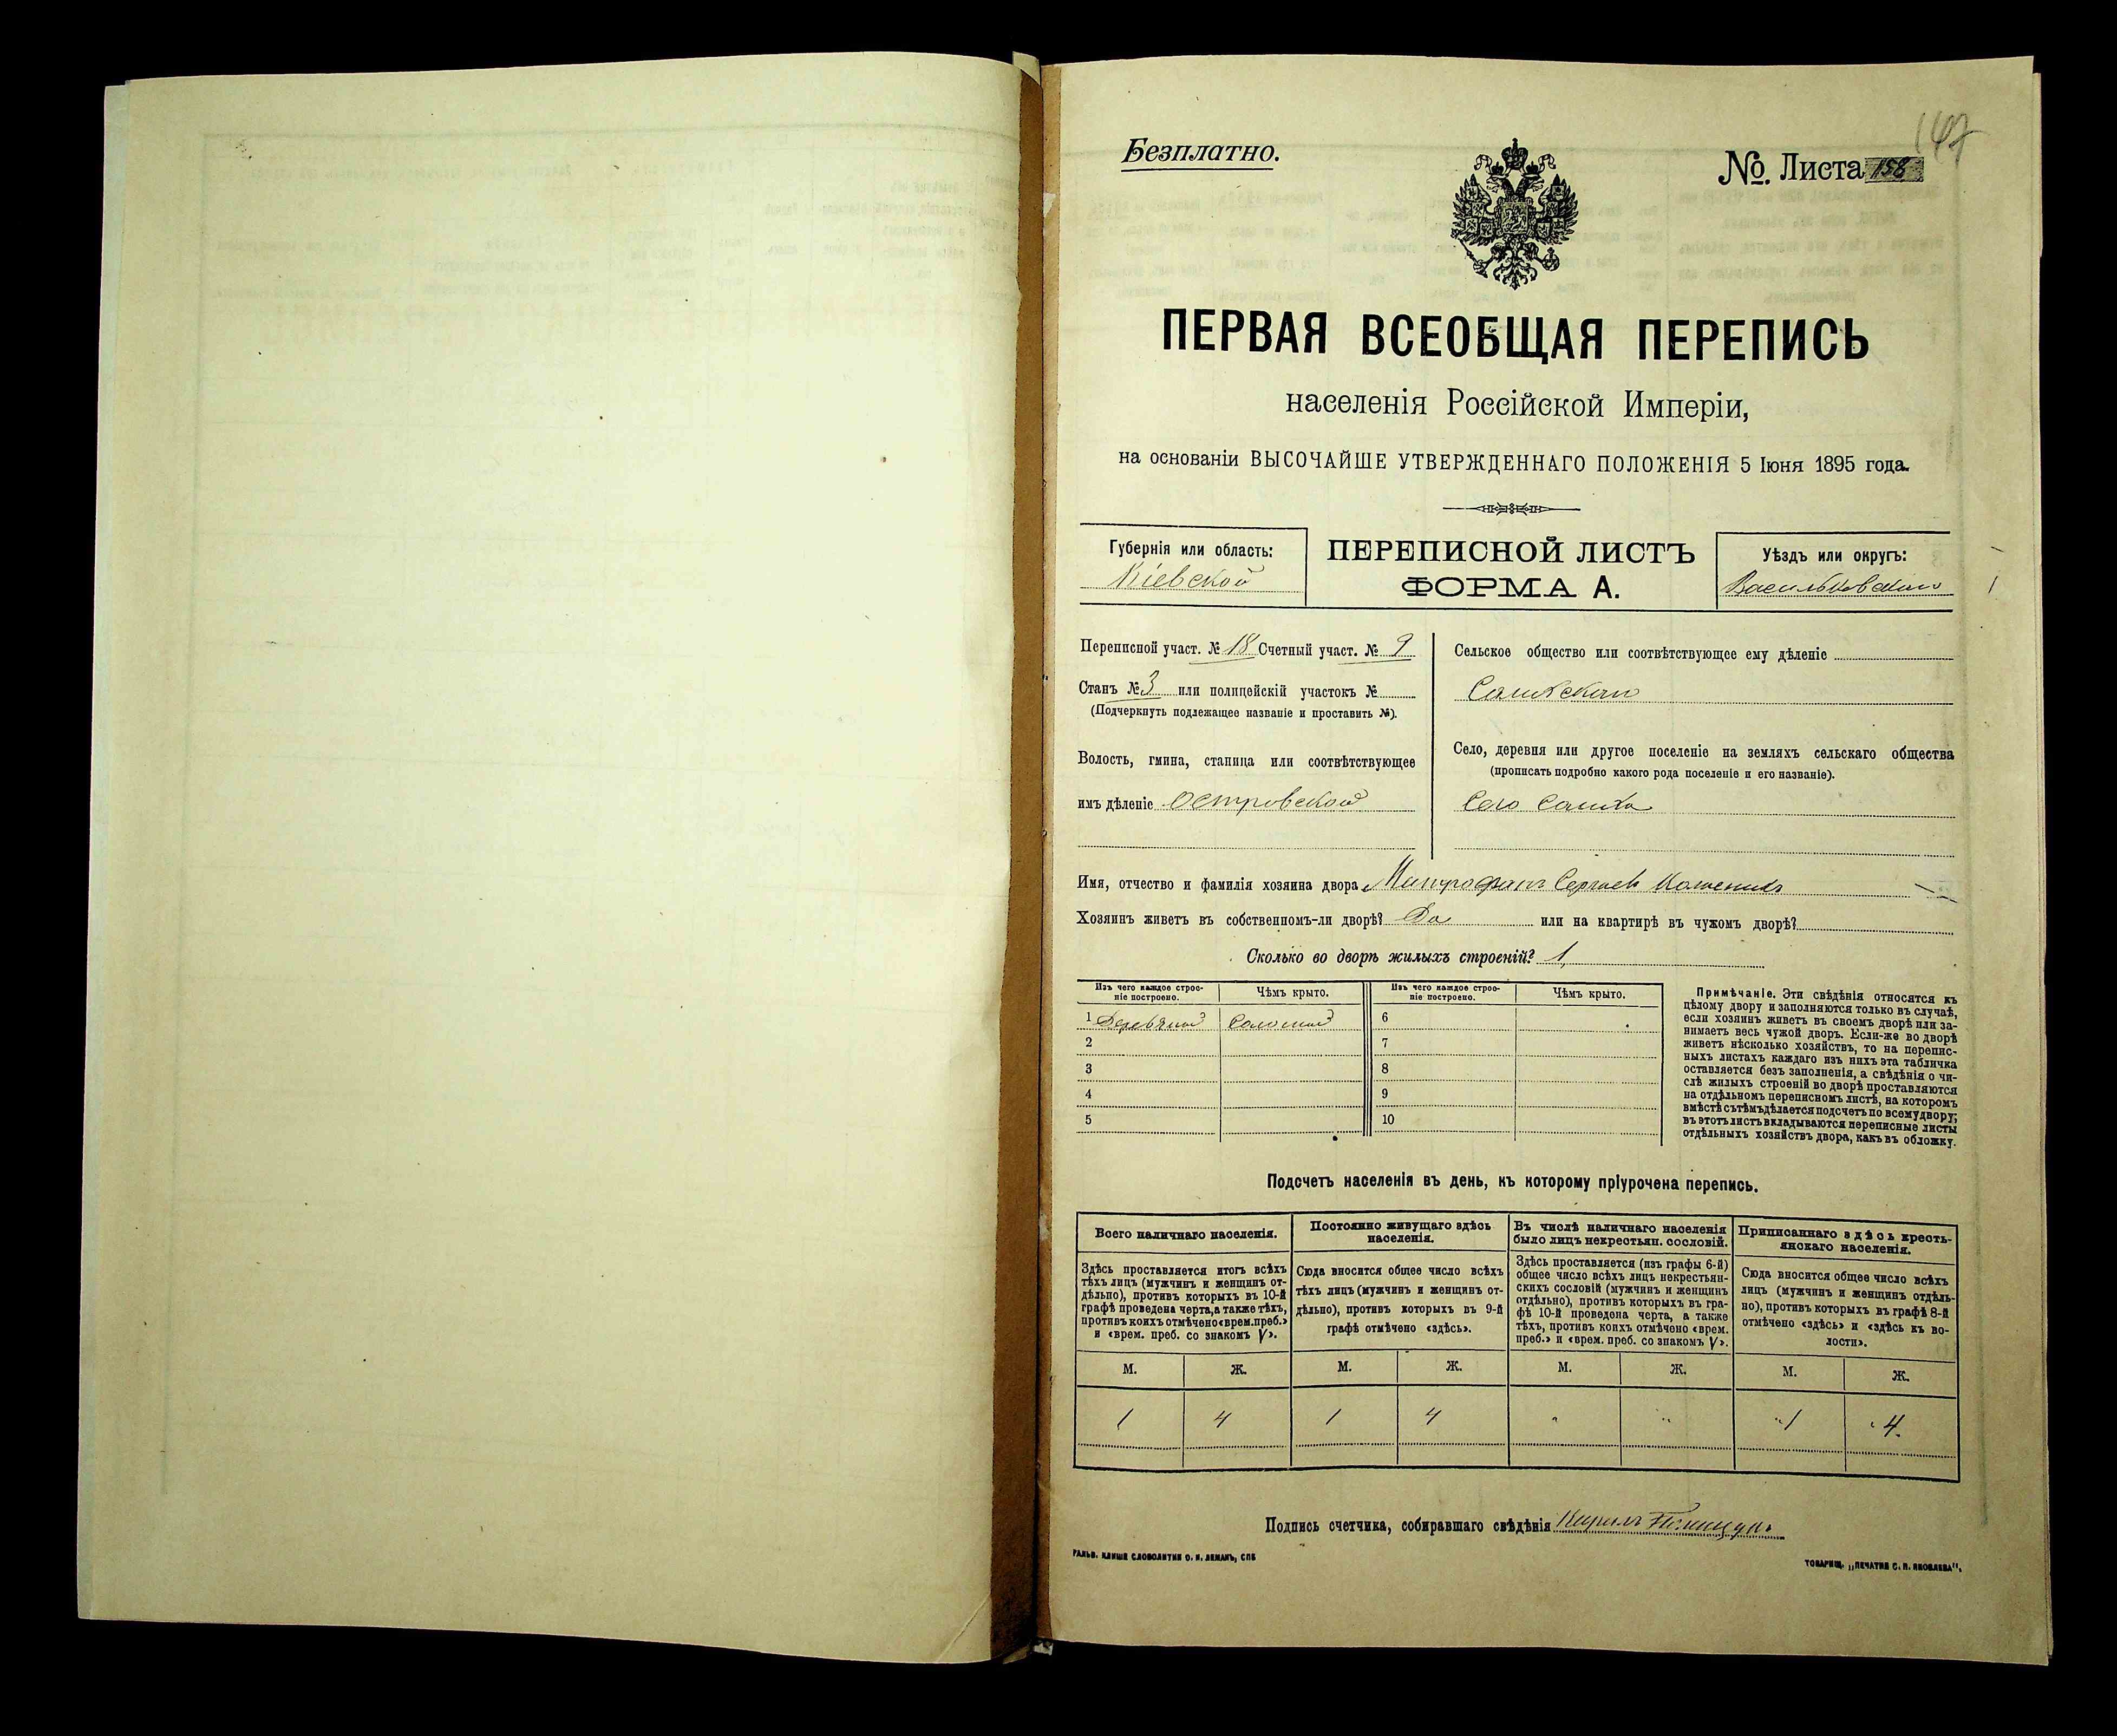 147
Безплатно.
№ Листа 158
ПЕРВАЯ ВСЕОБЩАЯ ПЕРЕПИСЬ
населенія Россійской Имперіи,
на основаніи ВЫСОЧАЙШЕ УТВЕРЖДЕННАГО ПОЛОЖЕНІЯ 5 Іюня 1895 года.
Губернія или область:
Кіевской
ПЕРЕПИСНОЙ ЛИСТЪ
ФОРМА А.
Уѣздъ или округъ:
Васильковскаго
Переписной участ. № 18 Счетный участ. № 9
Станъ № 3 или полицейскій участокъ №
(Подчеркнуть подлежащее названіе и проставить №).
Волость, гмина, станица или соотвѣтствующее
имъ дѣленіе Островской
Сельское общество или соотвѣтствующее ему дѣленіе
Село, деревня или другое поселеніе на земляхъ сельскаго общества
(прописать подробно какого рода поселеніе и его названіе).
Село
Имя, отчество и фамилія хозяина двора Митрофанъ Сергіевъ
Хозяинъ живетъ въ собственномъ-ли дворѣ? Да или на квартирѣ въ чужомъ дворѣ?
Сколько во дворѣ жилыхъ строеній? 1,
Изъ чего каждое строе-
ніе построено.
Чѣмъ крыто.
Изъ чего каждое строе-
ніе построено.
Чѣмъ крыто.
1 Деревяной Соломой 6
2 7
3 8
4 9
5 10
Примѣчаніе. Эти свѣдѣнія относятся къ
цѣлому двору и заполняются только въ случаѣ,
если хозяинъ живетъ въ своемъ дворѣ или за-
нимаетъ весь чужой дворъ. Если-же во дворѣ
живетъ нѣсколько хозяйствъ, то на перепис-
ныхъ листахъ каждаго изъ нихъ эта табличка
оставляется безъ заполненія, а свѣдѣнія о чи-
слѣ жилыхъ строеній во дворѣ проставляются
на отдѣльномъ переписномъ листѣ, на которомъ
вмѣстѣ съ тѣмъ дѣлается подсчетъ по всему двору;
въ этотъ листъ вкладываются переписные листы
отдѣльныхъ хозяйствъ двора, какъ въ обложку.
Подсчетъ населенія въ день, къ которому пріурочена перепись.
Всего наличнаго населенія.
Здѣсь проставляется итогъ всѣхъ
тѣхъ лицъ (мужчинъ и женщинъ от-
дѣльно), противъ которыхъ въ 10-й
графѣ проведена черта, а также тѣхъ,
противъ коихъ отмѣчено «врем. преб.»
и «врем. преб. со знакомъ V».
Постоянно живущаго здѣсь
населенія.
Сюда вносится общее число всѣхъ
тѣхъ лицъ (мужчинъ и женщинъ от-
дѣльно), противъ которыхъ въ 9-й
графѣ отмѣчено «здѣсь».
Въ числѣ наличнаго населенія
было лицъ некрестьян. сословій.
Здѣсь проставляется (изъ графы 6-й)
общее число всѣхъ лицъ некрестьян-
скихъ сословій (мужчинъ и женщинъ
отдѣльно), противъ которыхъ въ гра-
фѣ 10-й проведена черта, а также
тѣхъ, противъ коихъ отмѣчено «врем.
преб.» и «врем. преб. со знакомъ V».
Приписаннаго здѣсь кресть-
янскаго населенія.
Сюда вносится общее число всѣхъ
лицъ (мужчинъ и женщинъ отдѣль-
но), противъ которыхъ въ графѣ 8-й
отмѣчено «здѣсь» и «здѣсь къ во-
лости».
М. Ж. М. Ж. М. Ж. М. Ж.
1 4 1 4 " " "1 "4.
Подпись счетчика, собиравшаго свѣдѣнія Кирилъ
ГАЛЬВ. КЛИШЕ СЛОВОЛИТНИ О. И. ЛЕМАНЪ, СПБ
ТОВАРИЩ. „ПЕЧАТНЯ С. П. ЯКОВЛЕВА".